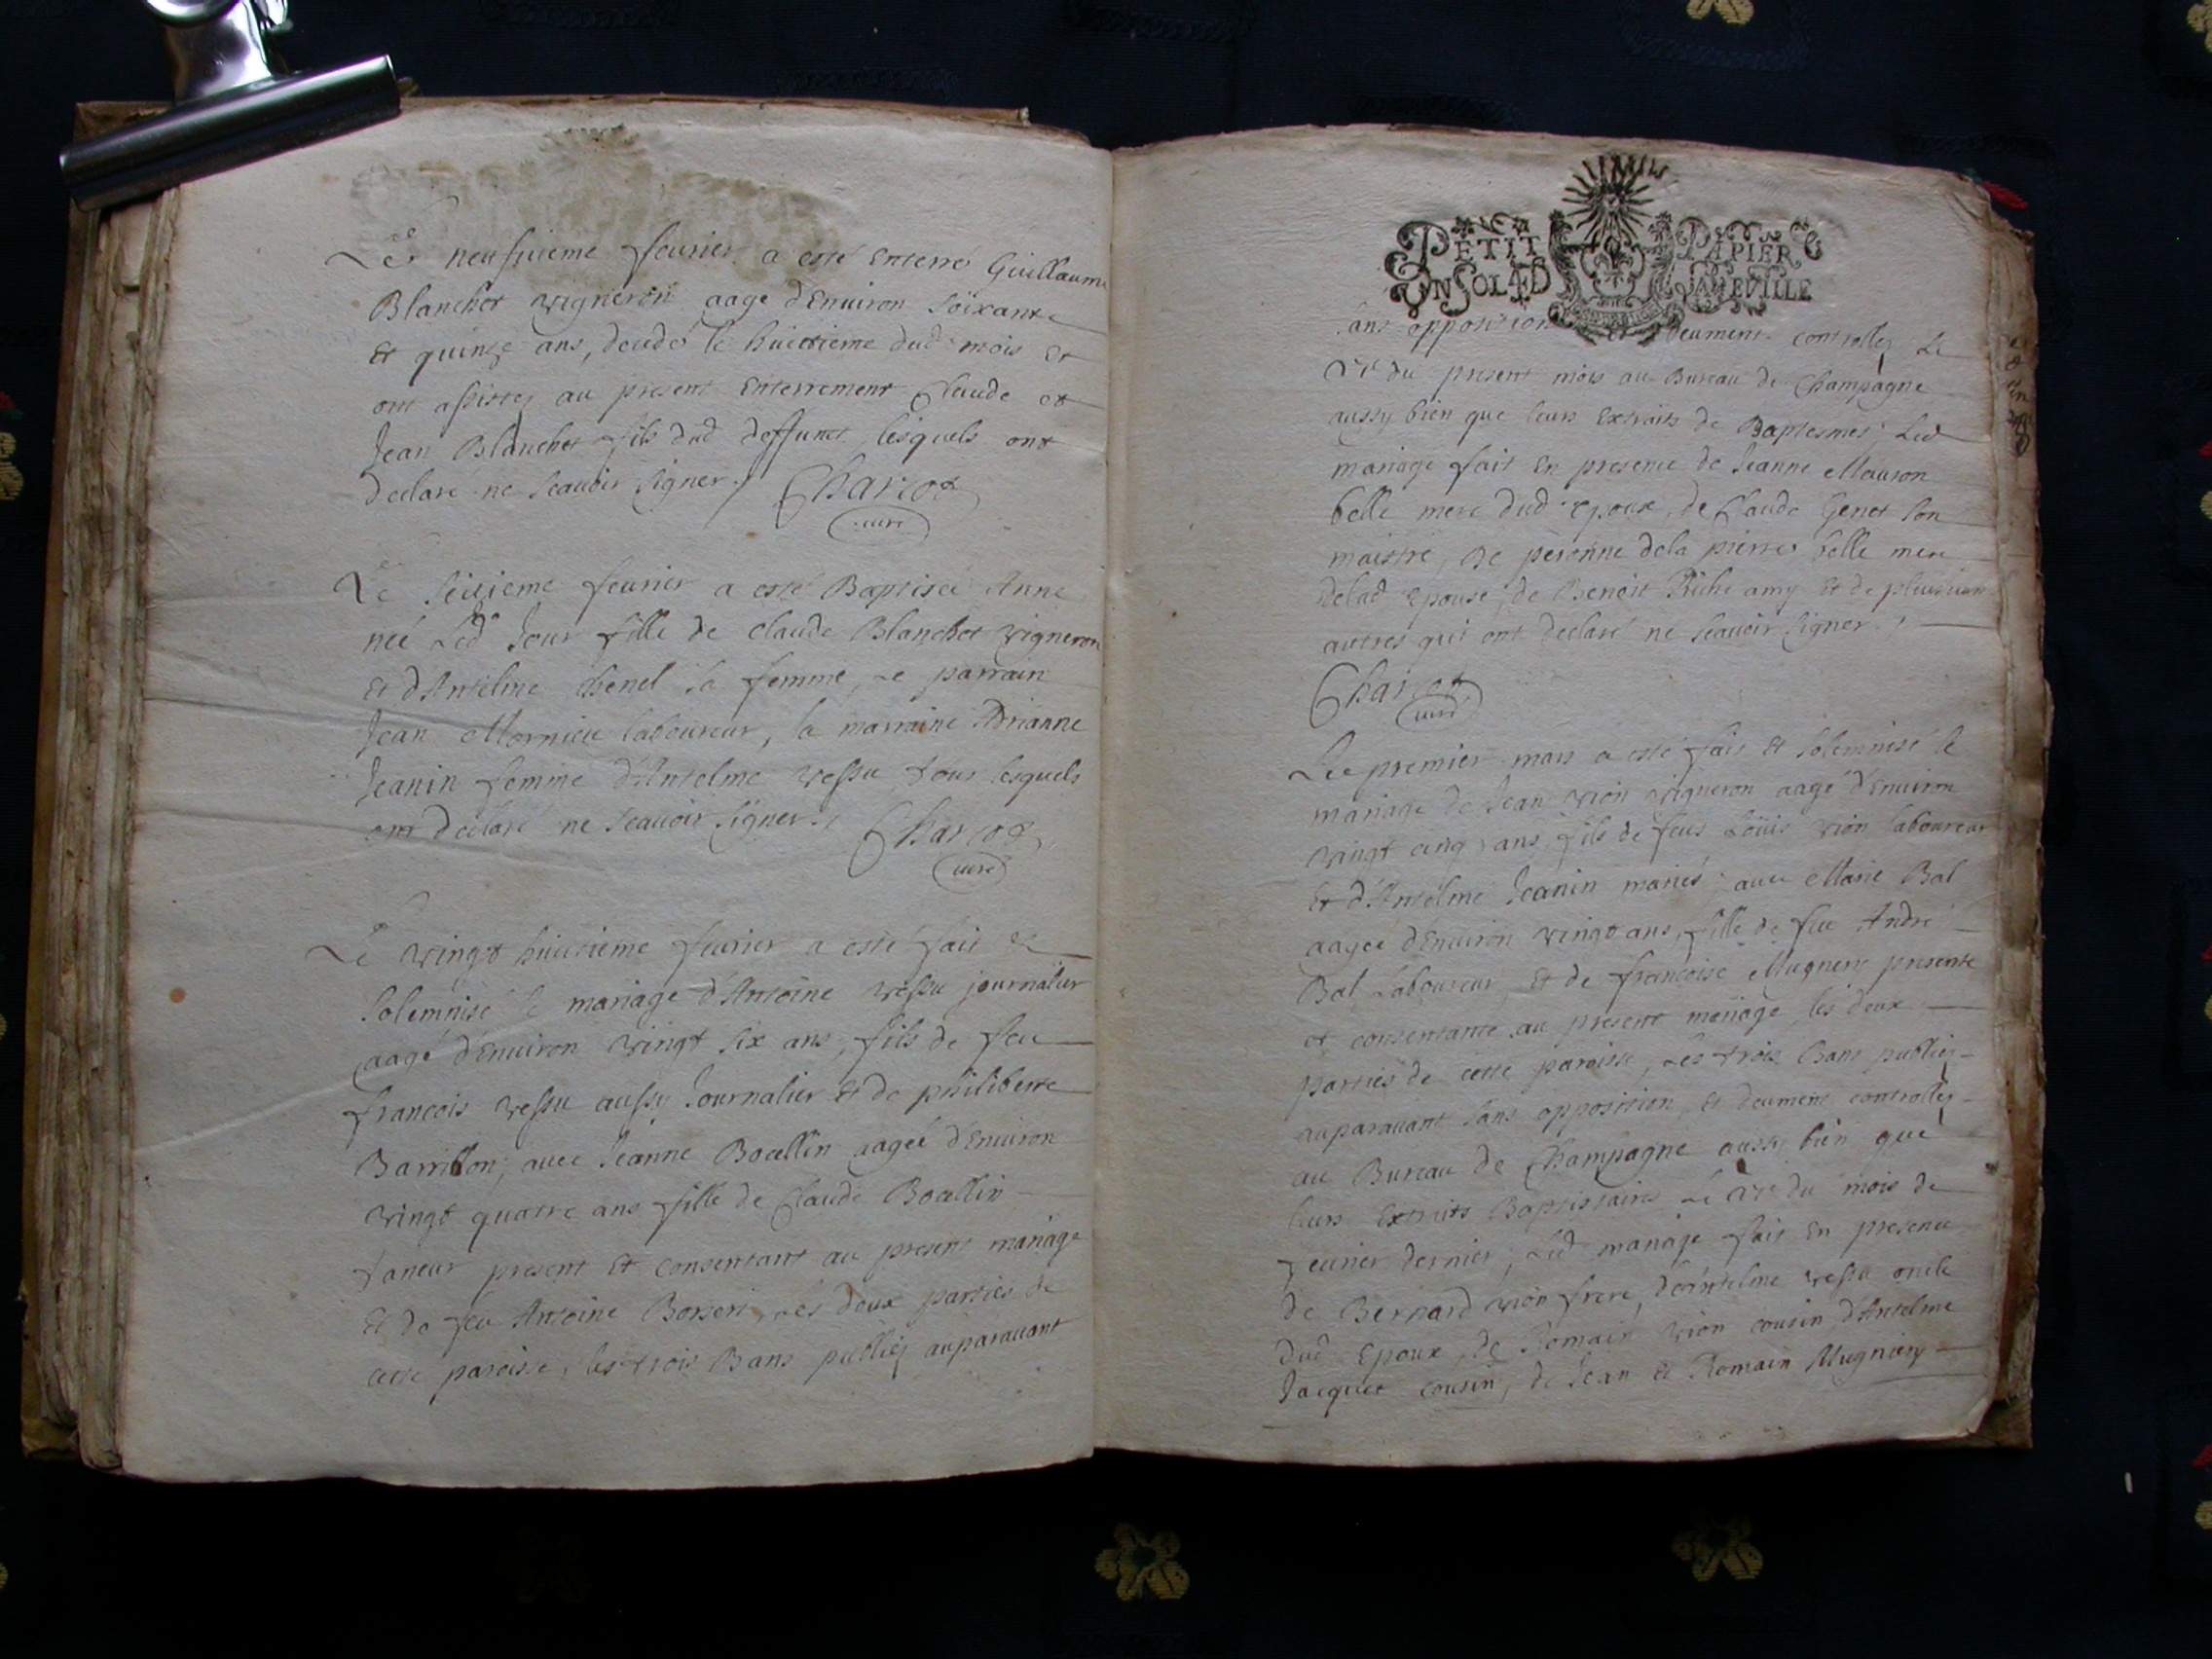 Le neufuieme feurier a esté Enterré Guillaume
Blanchet vigneron aage d'Enuiron Soixante
Et quinze ans, decedé le huictieme dud mois et
ont assistez au present Enterrement Claude et
Jean Blanchet fils dud deffunct, lesquels ont
declaré ne Scauoir Signer./. Charcot
curé
Le Seizieme feurier a esté Baptisée Anne
née Led Jour fille de Claude Blanchet vigneron
Et d'Antelme chenel sa femme, Le parrain
Jean Mornieu laboureur, la marraine Adrianne
Jeanin femme d'Antelme vessu tous lesquels
ont declaré ne Scauoir Signer./. Charcot
curé
Le vingt huictieme feurier a esté fait et
Solemnisé le mariage d'Antoine vessu journalier
aagé d'Enuiron vingt six ans, fils de feu
francois vessu aussy Journalier Et de philiberte
Barrillon; auec Jeanne Bocllin aagée d'Enuiron
vingt quatre ans fille de Claude Bocllin
taneur present Et consentant au present mariage
Et de feu Antoine Les deux parties de
cette paroisse, les trois Bans publiez auparauant
PETIT PAPIER
UN SOL LA FEUILLE
Sans opposition et deument controllez Le
du present mois au Bureau de Champagne
aussy bien que leurs Extraits de Baptesmes; Led
mariage fait En presence de Jeanne Mauron
belle mere dud Epoux, de Claude Genet Son
maistre, de peronne dela pierre belle mere
delad Epouse, de Benoit Riche amy Et de plusieurs
autres qui ont declaré ne Scauoir Signer./.
Charcot
curé
Le premier mars a esté fait Et Solemnisé le
mariage de Jean vion vigneron aagé d'Enuiron
vingt cinq ans fils de feus Loüis vion laboureur
Et d'Antelme Jeanin mariés; auec Marie Bal
aagée d'Enuiron vingt ans, fille de feu André
Bal Laboureur, Et de francoise Mugnery presente
et consentante au present mariage, les deux
parties de cette paroisse, Les trois Bans publiez
auparauant Sans opposition, Et deument controllez
au Bureau de Champagne aussy bien que
leurs Extraits Baptistaires Le du mois de
feurier dernier; Led mariage fait En presence
de Bernard vion frere, d'Antelme vessu oncle
dud Epoux, de Romain vion cousin d'Antelme
Jacquet cousin, de Jean et Romain Mugniery